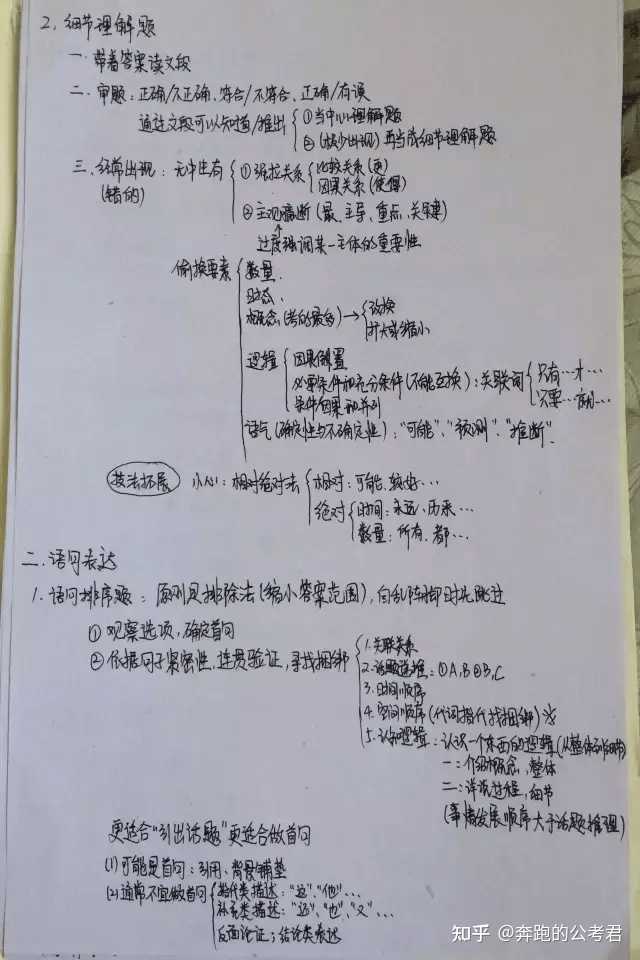 2. 细节理解题
一. 带着答案读文段
二. 审题：正确/不正确、符合/不符合、正确/有误
通过文段可以知道/推出 ①当中心理解题
②(极少出现) 再当成细节理解题
三. 经常出现：无中生有 ①强拉关系 比较关系(更)
(错的) 因果关系(使得)
②主观臆断(最、主导、重点、关键)
过度强调某一主体的重要性
偷换要素 数量.
时态、
概念(考的最多)→ 改换
扩大或缩小
逻辑 因果倒置
必要条件和充分条件(不能互换)：关联词 只有…才…
条件/因果和并列 只要…就…
语气(确定性与不确定性)："可能"、"预测"、"推断".
技法拓展 小心：相对绝对法 相对：可能、较好…
绝对 时间：永远、历来…
数量：所有、都…
二. 语句表达
1. 语句排序题：原则是排除法(缩小答案范围),
①观察选项,确定首句
②依据句子紧密性,连贯验证,寻找捆绑 1.关联关系
2.话题递推：①A,B②B,C
3.时间顺序
4.空间顺序(代词指代找捆绑)
5.认知逻辑：认识一个东西的逻辑(从整体到细节)
一：介绍概念,整体
二：详说过程,细节
(事情发展顺序大于话题推理)
更适合"引出话题"更适合做首句
(1)可能是首句：引用、背景铺垫
(2)通常不宜做首句 指代类描述："这"、"他"…
补充类描述："还"、"也"、"又"…
反面论证；结论类表达
知乎 @奔跑的公考君